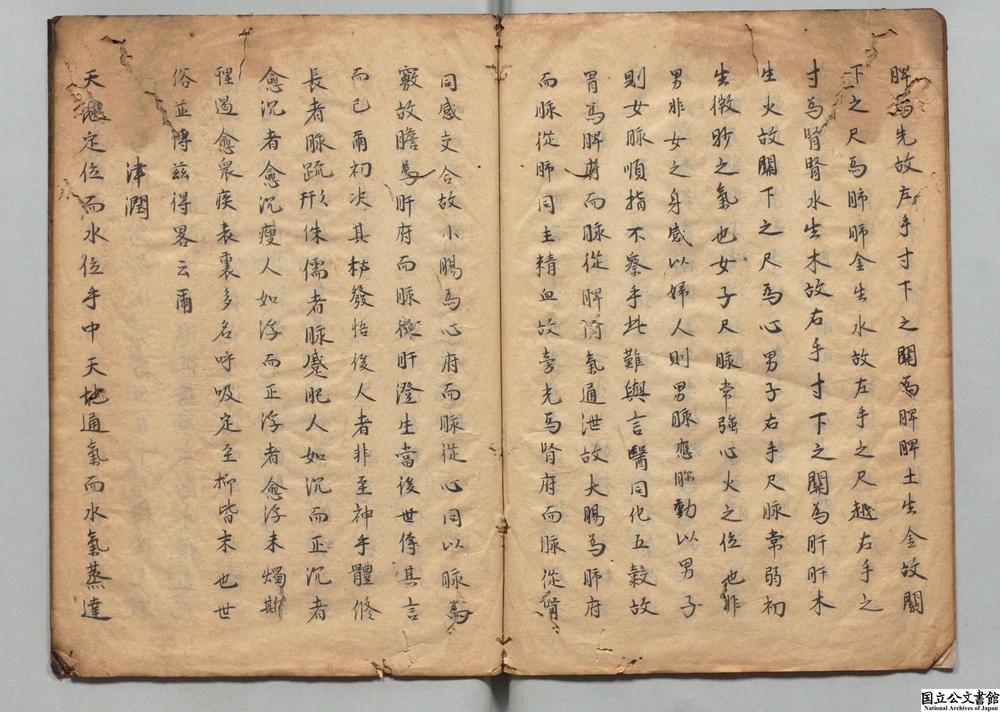 脾為先故左手寸下之關為脾脾土生金故關
下之尺為肺肺金生水故左手之尺越右手之
寸為腎腎水生木故右手寸下之關為肝肝木
生火故關下之尺為心男子右手尺脉常弱初
生微眇之氣也女子尺脉常強心火之位也非
男非女之身感以婦人則男脉應胗動以男子
則女脉順指不察乎此難與言醫同化五穀故
胃為脾府而脉從脾同氣通泄故大腸為肺府
而脉從肺同主精血故旁光為腎府而脉從腎
同感交合故小腸為心府而脉從心同以脉為
竅故膽為肝府而脉從肝澄生當後世傳其言
而已爾初决其秘發悟後人者非至神乎體修
長者脉疏形侏儒者脉蹙肥人如沉而正沉者
愈沉者愈沉瘦人如浮而正浮者愈浮未燭斯
理過愈衆疾表裏多名呼吸定至抑皆末也世
俗並傳兹得畧云爾
津潤
天地定位而水位乎中天地通氣而水氣蒸達
国立公文書館
National Archives of Japan